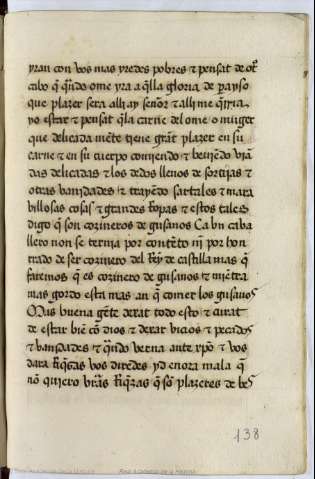 yran con vos mas yredes pobres & pensat de otͬ
cabo q̃ qñdo ome yra a q̃lla gloria de parayso
que plazer sera alli ay señor & alli me q̃rria
yo estar & pensat q̃ la carne del ome o muger
que delicada mẽte tiene grãt plazer en su
carne & en su cuerpo comiendo & beuiẽdo viã
das delicadas & los dedos llenos de sortijas &
otras vanidades & trayẽdo sartales & mara
villosas cosas & grandes rropas & estos tales
digo q̃ son cozineros de gusanos Ca vn caba
llero non se ternia por contẽto nĩ por hon
rrado de ser cozinero del Rey de castilla mas q̃
faremos q̃ es cozinero de gusanos & miẽtra
mas gordo esta mas an q̃ comer los gusanos
Mas buena gẽte dexat todo esto & curat
de estar biẽ cõ dios & dexar vicios & pecados
& vanidades & qñdo verna ante xp̃o & vos
dara rriq̃zas vos diredes yd en ora mala q̃
nõ quiero vr̃as rriq̃zas q̃ sõ plazeres de bes
138
Real Academia de la Historia